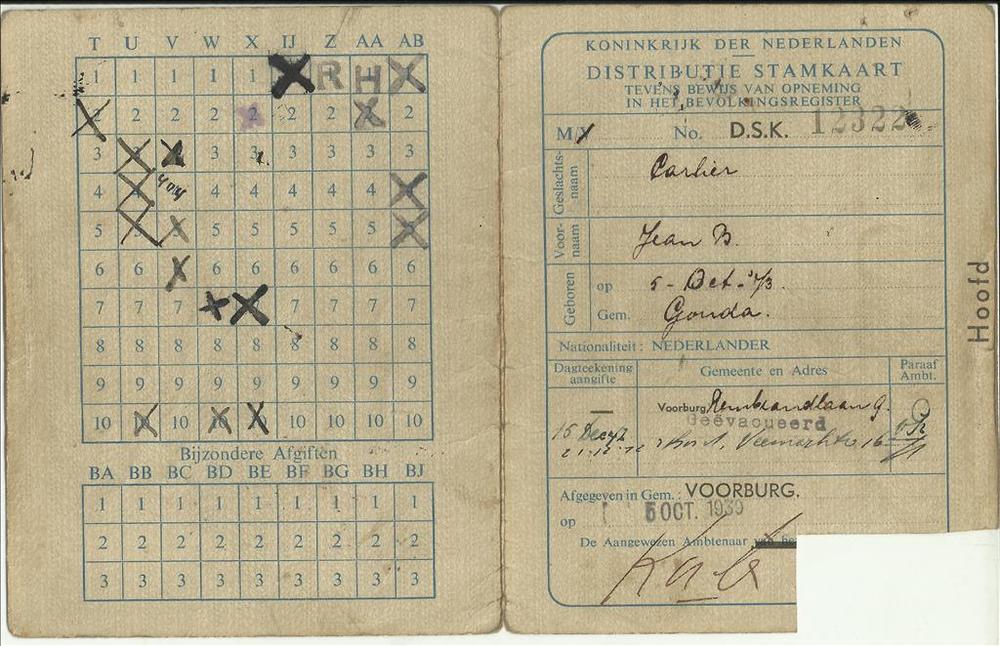 T U V W X IJ Z AA AB
1 1 1 1 1 R H
2 2 2 2 2 2 2
3 3 3 3 3 3 3
4 4 4 4 4 4 4
5 5 5 5 5 5
6 6 6 6 6 6 6 6
7 7 7 7 7 7 7
8 8 8 8 8 8 8 8 8
9 9 9 9 9 9 9 9 9
10 10 10 10 10 10
Bijzondere Afgiften
BA BB BC BD BE BF BG BH BJ
1 1 1 1 1 1 1 1 1
2 2 2 2 2 2 2 2 2
3 3 3 3 3 3 3 3 3
KONINKRIJK DER NEDERLANDEN
DISTRIBUTIE STAMKAART
TEVENS BEWIJS VAN OPNEMING
IN HET BEVOLKINGSREGISTER
M/V No. D.S.K. 12322
Geslachtsnaam Carlier
Voornaam Jean B.
Geboren op 5 - Oct.-'73.
Gem. Gouda.
Nationaliteit: NEDERLANDER
Dagteekening aangifte
Gemeente en Adres
Paraaf Ambt.
Voorburg Rembrandtlaan 9.
Geëvacueerd
15 Dec 42
Afgegeven in Gem.: VOORBURG.
op 5 OCT. 1939
De Aangewezen Ambtenaar
Hoofd